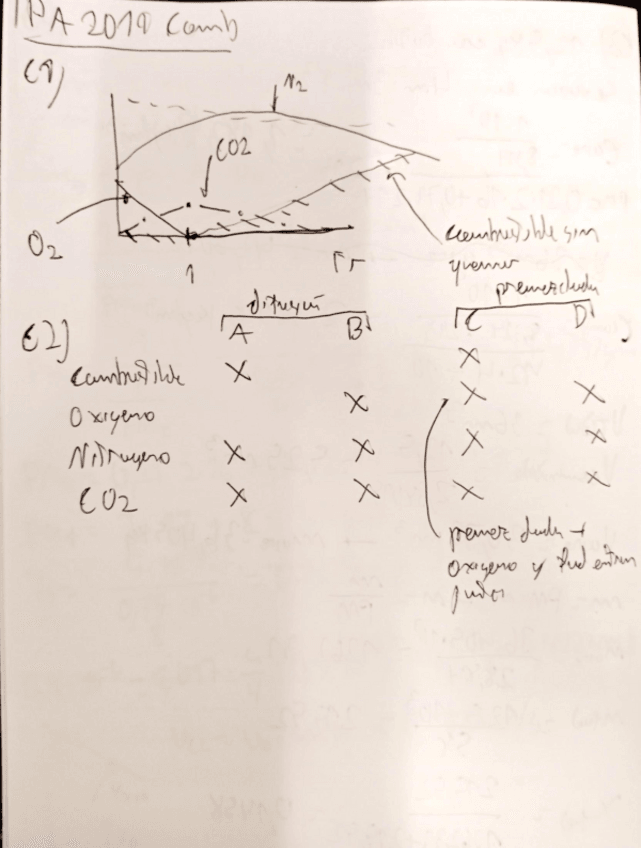 IPA 2019 Comb
C1)
N2
CO2
O2
1
Fr
combustible sin
quemar
difusión
premezclada
C2)
A B C D
Combustible X X
Oxigeno X X X
Nitrogeno X X X X
CO2 X X X X
premezclada →
oxigeno y fuel entran
juntos